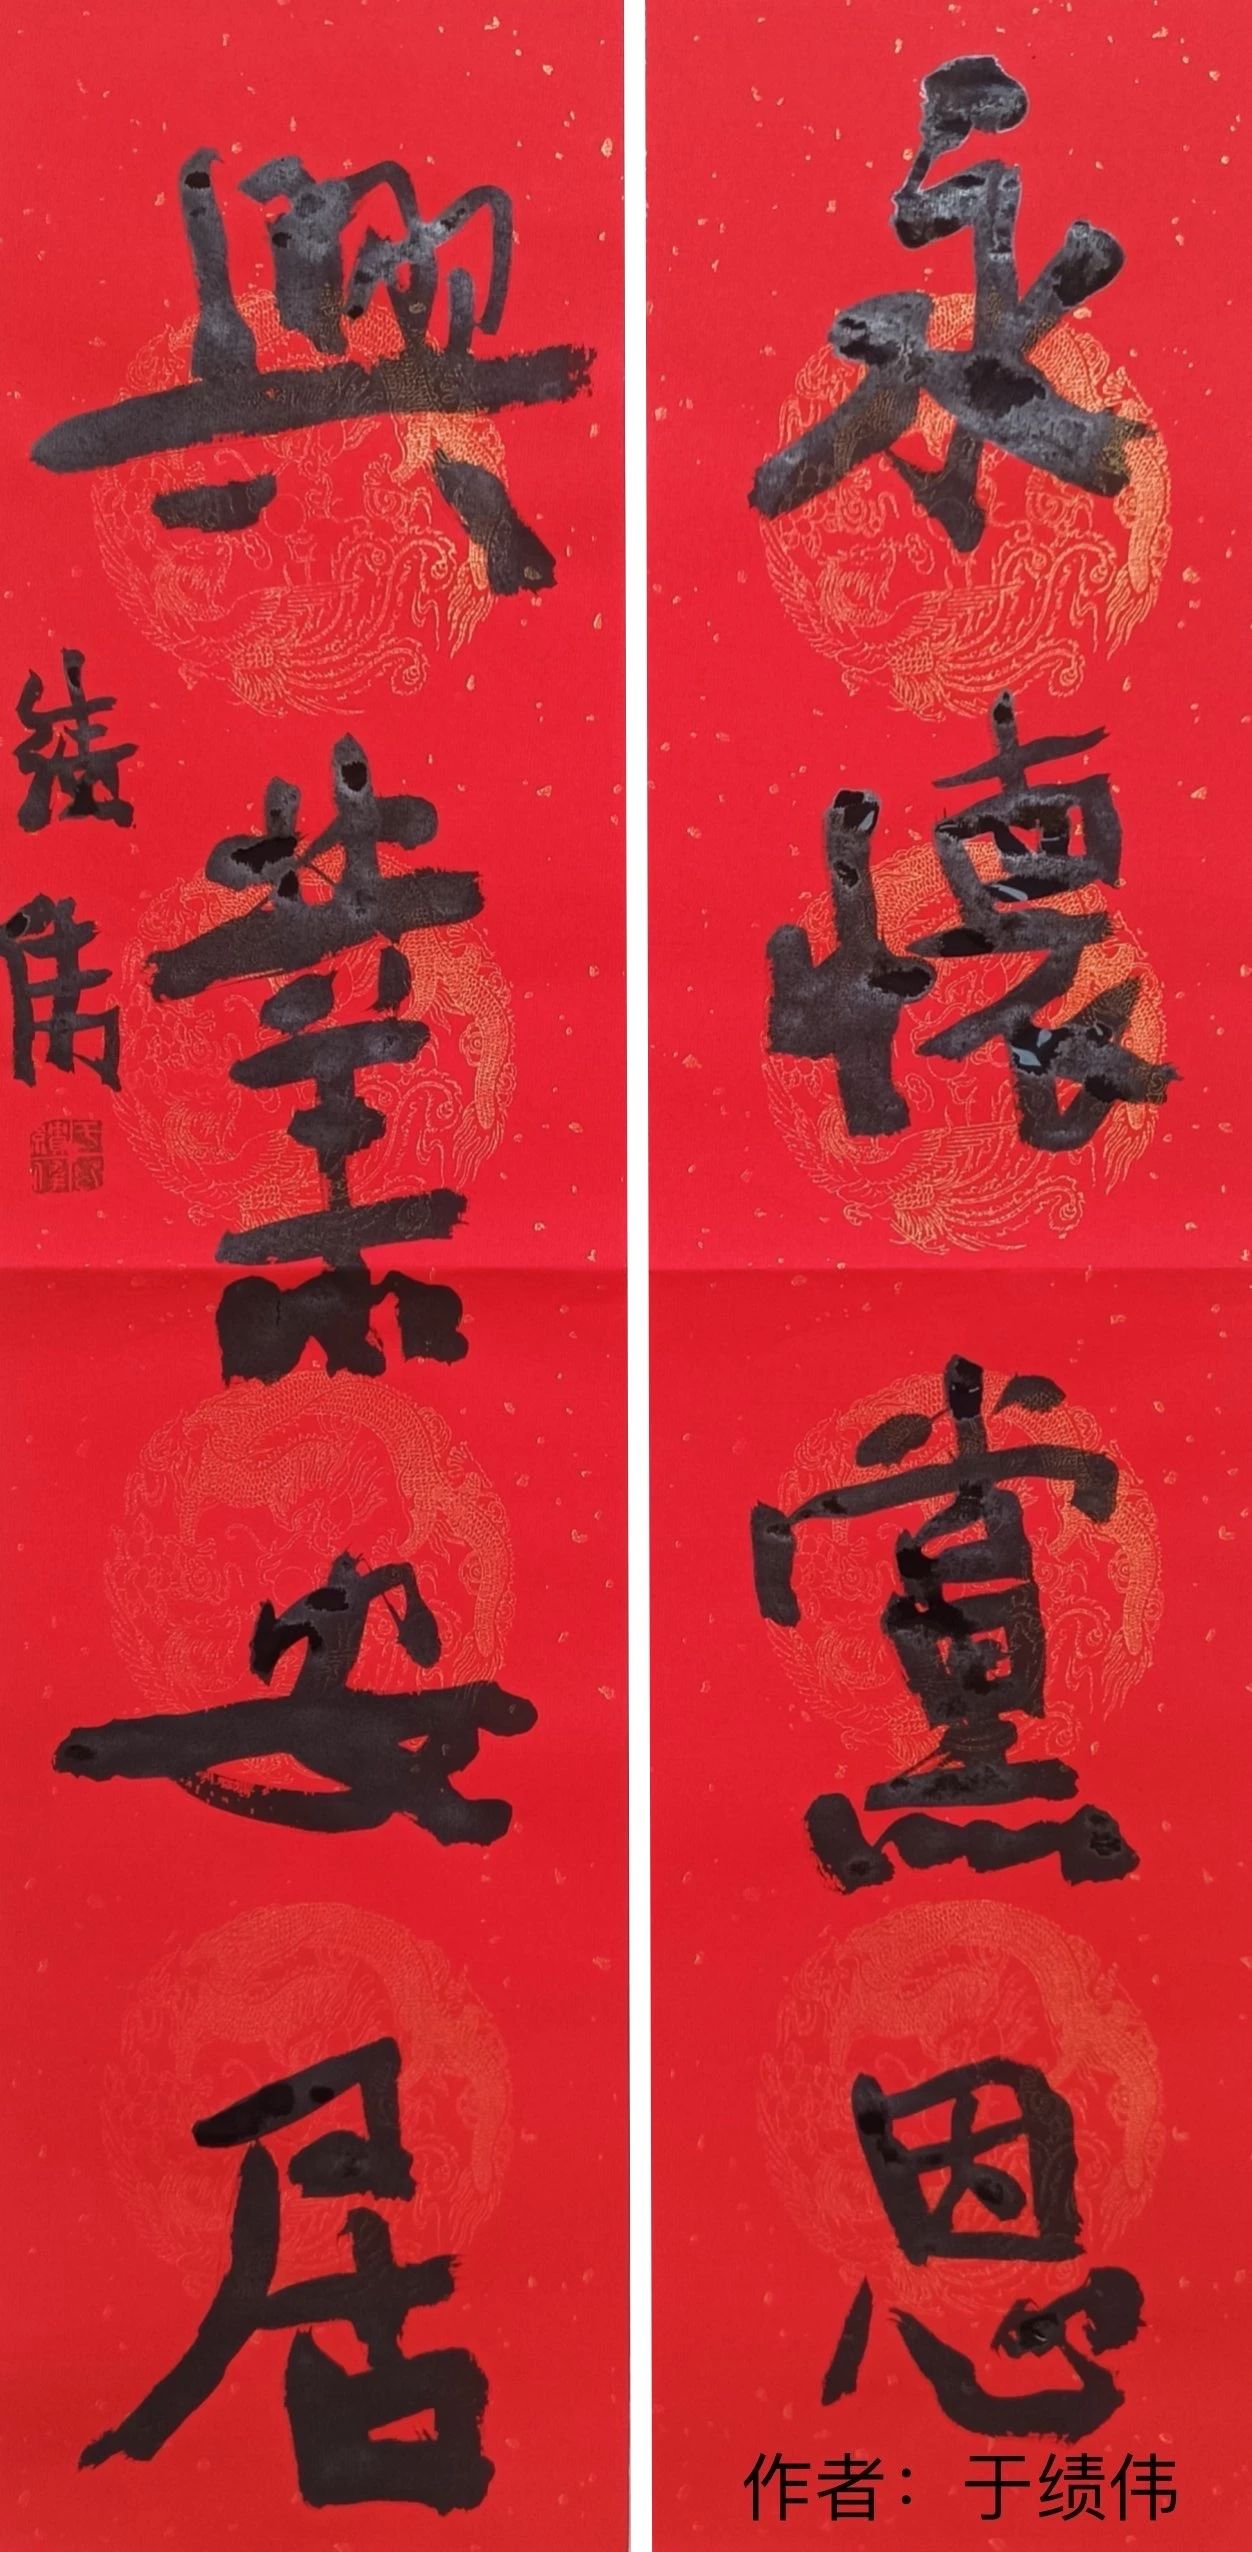 永懷黨恩
興業安居
绩偉
作者：于绩伟